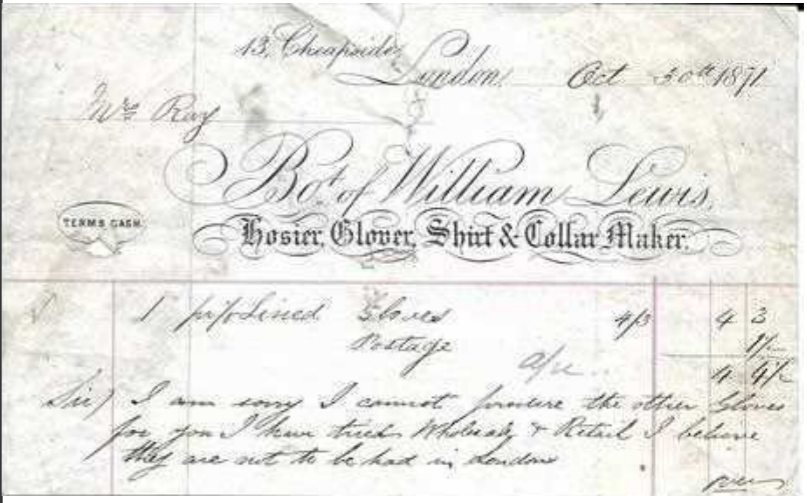 13, Cheapside,
London, Oct 30th 1871
Mrs Ray
Bot. of William Lewis,
TERMS CASH.
Hosier, Glover, Shirt & Collar Maker.
1 pr Lined Gloves 4/3 4 3
Postage 1/2
4 4/2
Sir) I am sorry I cannot procure the other Gloves
for you I have tried Wholesale & Retail I believe
they are not to be had in London
over